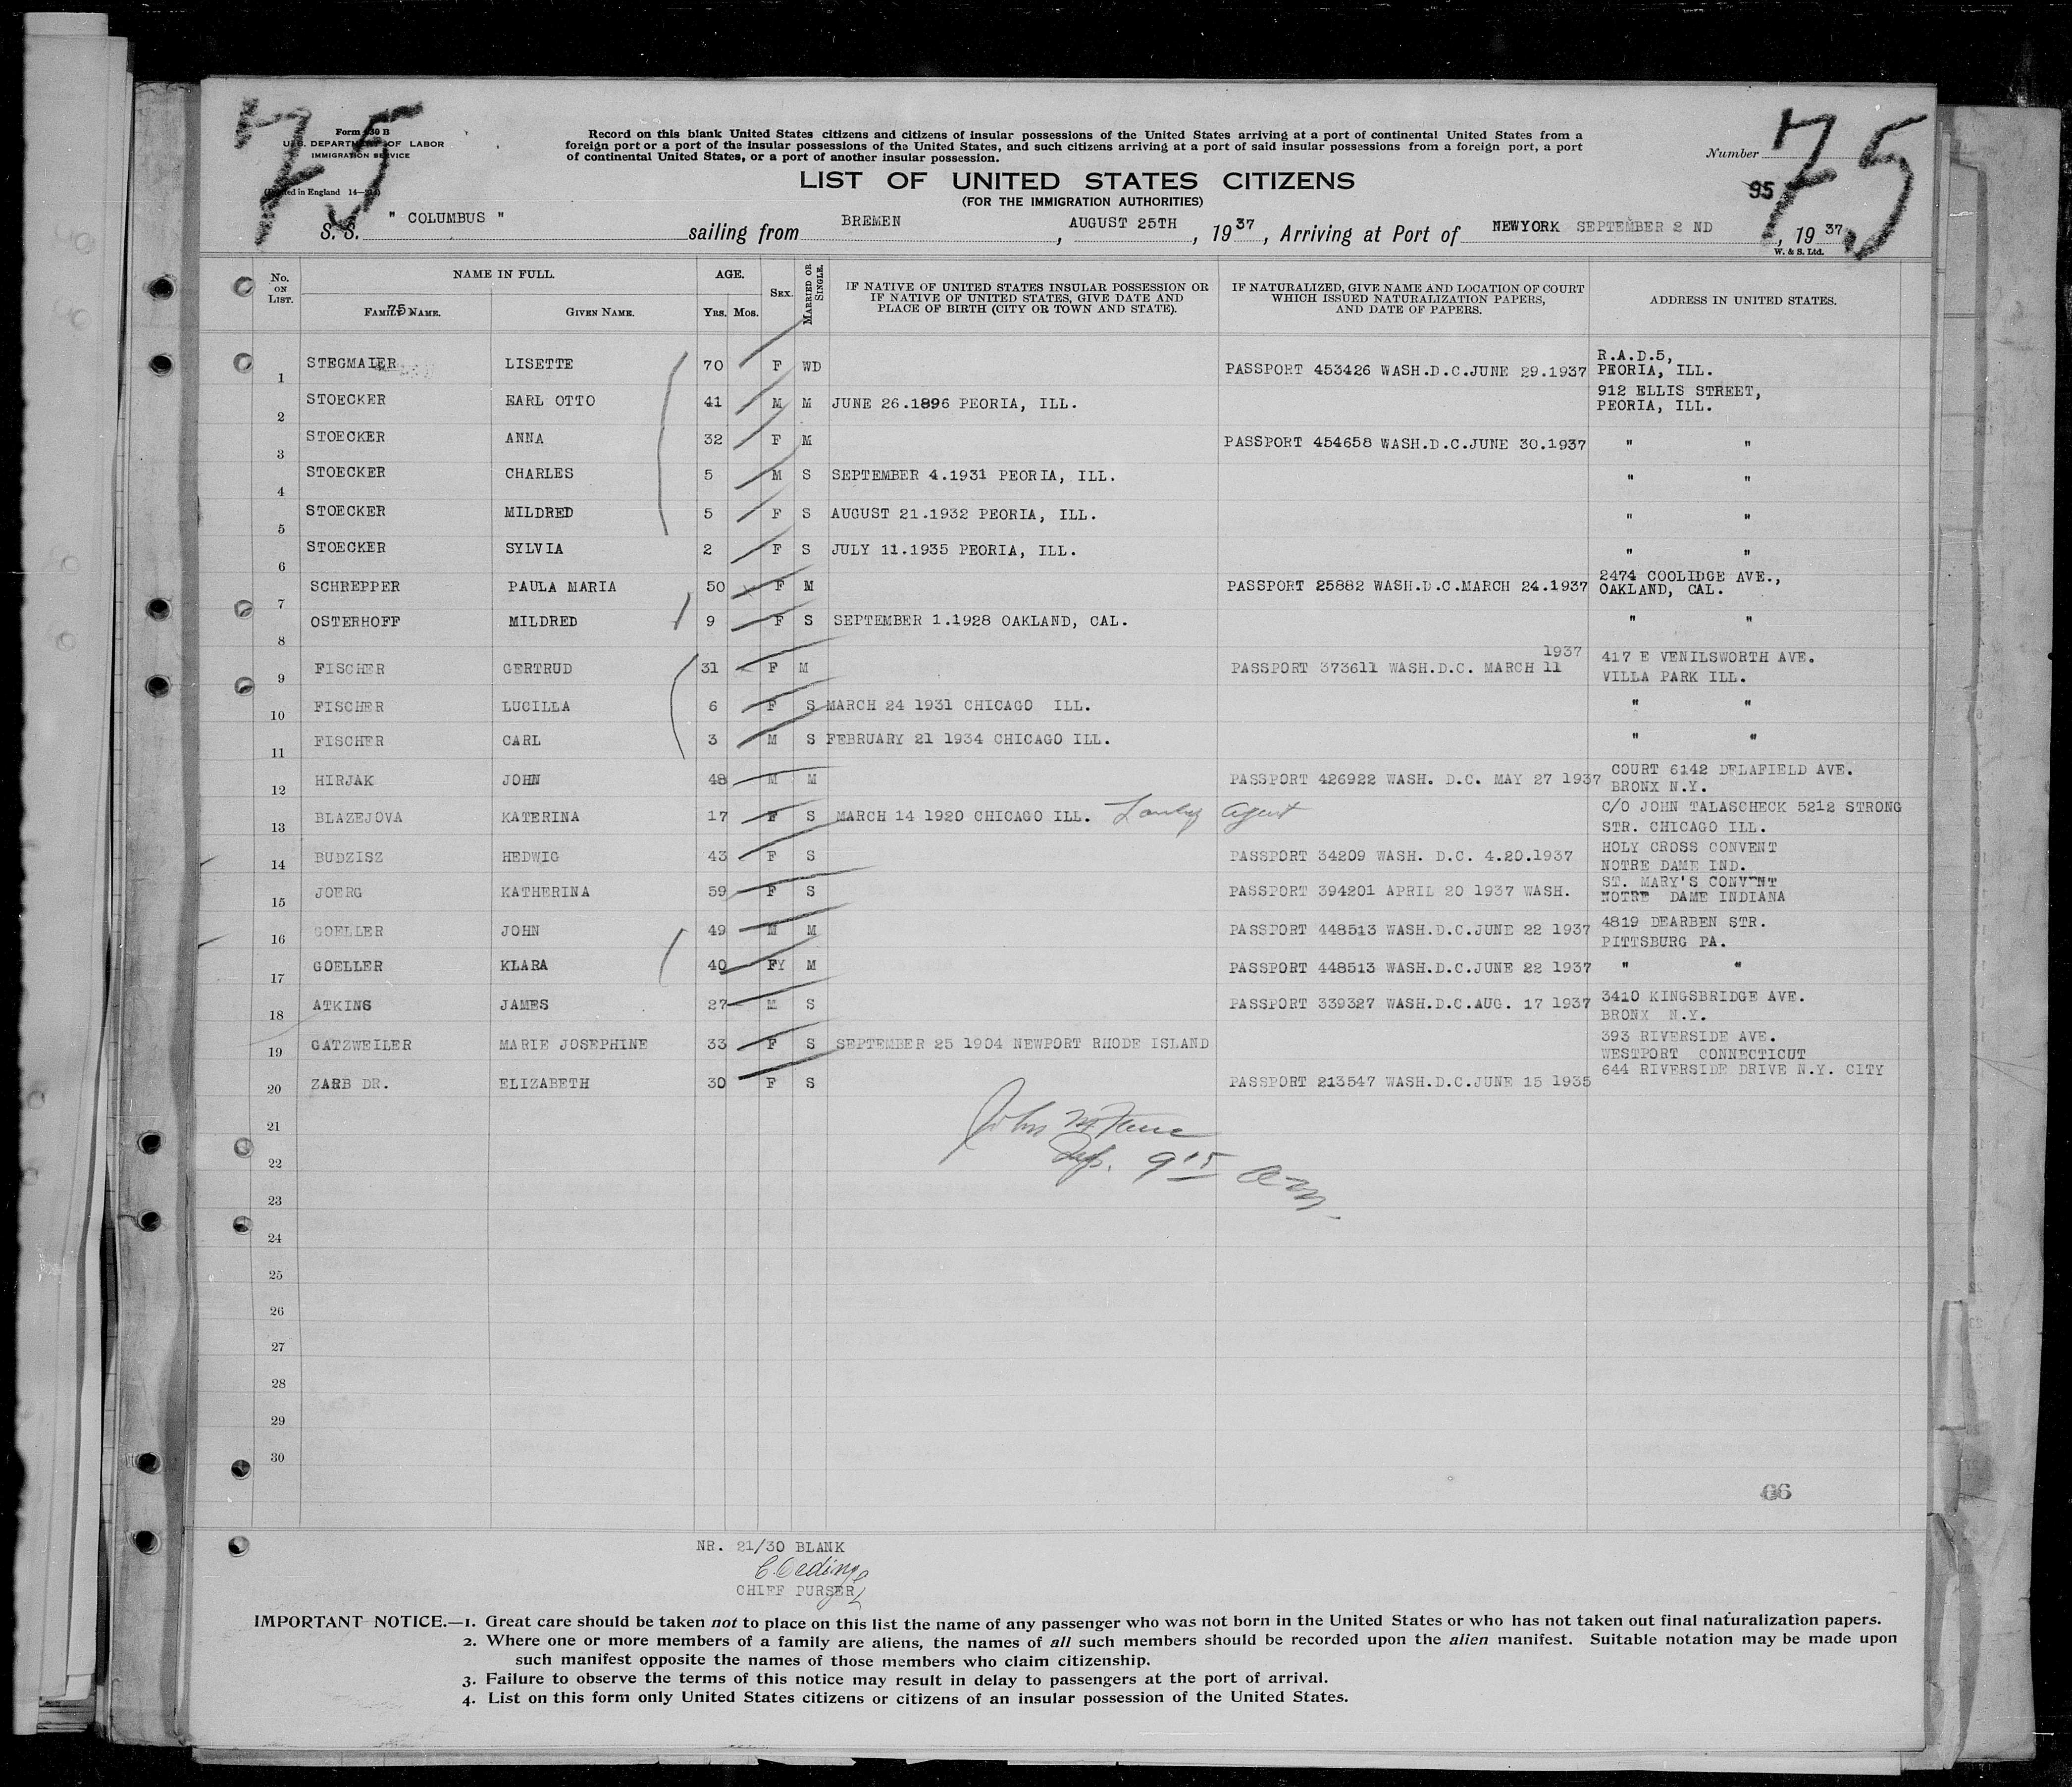 75
75
Form 630 B
U.S. DEPARTMENT OF LABOR
IMMIGRATION SERVICE
(Printed in England 14—
Record on this blank United States citizens and citizens of insular possessions of the United States arriving at a port of continental United States from a
foreign port or a port of the insular possessions of the United States, and such citizens arriving at a port of said insular possessions from a foreign port, a port
of continental United States, or a port of another insular possession.
Number
95
LIST OF UNITED STATES CITIZENS
(FOR THE IMMIGRATION AUTHORITIES)
S. S. " COLUMBUS " sailing from BREMEN, AUGUST 25TH, 1937, Arriving at Port of NEWYORK SEPTEMBER 2 ND, 1937
W. & S. Ltd.
No. ON LIST. NAME IN FULL. AGE. SEX. MARRIED OR SINGLE. IF NATIVE OF UNITED STATES INSULAR POSSESSION OR IF NATIVE OF UNITED STATES, GIVE DATE AND PLACE OF BIRTH (CITY OR TOWN AND STATE). IF NATURALIZED, GIVE NAME AND LOCATION OF COURT WHICH ISSUED NATURALIZATION PAPERS, AND DATE OF PAPERS. ADDRESS IN UNITED STATES.
FAMILY NAME. 75 GIVEN NAME. YRS. MOS.
1 STEGMAIER LISETTE 70 F WD PASSPORT 453426 WASH.D.C.JUNE 29.1937 R.A.D.5, PEORIA, ILL.
2 STOECKER EARL OTTO 41 M M JUNE 26.1896 PEORIA, ILL. 912 ELLIS STREET, PEORIA, ILL.
3 STOECKER ANNA 32 F M PASSPORT 454658 WASH.D.C.JUNE 30.1937 " "
4 STOECKER CHARLES 5 M S SEPTEMBER 4.1931 PEORIA, ILL. " "
5 STOECKER MILDRED 5 F S AUGUST 21.1932 PEORIA, ILL. " "
6 STOECKER SYLVIA 2 F S JULY 11.1935 PEORIA, ILL. " "
7 SCHREPPER PAULA MARIA 50 F M PASSPORT 25882 WASH.D.C.MARCH 24.1937 2474 COOLIDGE AVE., OAKLAND, CAL.
8 OSTERHOFF MILDRED 9 F S SEPTEMBER 1.1928 OAKLAND, CAL. " "
9 FISCHER GERTRUD 31 F M PASSPORT 373611 WASH.D.C. MARCH 11 1937 417 E VENILSWORTH AVE. VILLA PARK ILL.
10 FISCHER LUCILLA 6 F S MARCH 24 1931 CHICAGO ILL. " "
11 FISCHER CARL 3 M S FEBRUARY 21 1934 CHICAGO ILL. " "
12 HIRJAK JOHN 48 M M PASSPORT 426922 WASH. D.C. MAY 27 1937 COURT 6142 DELAFIELD AVE. BRONX N.Y.
13 BLAZEJOVA KATERINA 17 F S MARCH 14 1920 CHICAGO ILL. Agent C/O JOHN TALASCHECK 5212 STRONG STR. CHICAGO ILL.
14 BUDZISZ HEDWIG 43 F S PASSPORT 34209 WASH. D.C. 4.20.1937 HOLY CROSS CONVENT NOTRE DAME IND.
15 JOERG KATHERINA 59 F S PASSPORT 394201 APRIL 20 1937 WASH. ST. MARY'S CONVENT NOTRE DAME INDIANA
16 GOELLER JOHN 49 M M PASSPORT 448513 WASH.D.C.JUNE 22 1937 4819 DEARBEN STR. PITTSBURG PA.
17 GOELLER KLARA 40 FY M PASSPORT 448513 WASH.D.C.JUNE 22 1937 " "
18 ATKINS JAMES 27 M S PASSPORT 339327 WASH.D.C.AUG. 17 1937 3410 KINGSBRIDGE AVE. BRONX N.Y.
19 GATZWEILER MARIE JOSEPHINE 33 F S SEPTEMBER 25 1904 NEWPORT RHODE ISLAND 393 RIVERSIDE AVE. WESTPORT CONNECTICUT
20 ZARB DR. ELIZABETH 30 F S PASSPORT 213547 WASH.D.C.JUNE 15 1935 644 RIVERSIDE DRIVE N.Y. CITY
21
John
22
9 15 am
23
24
25
26
27
28
29
30
66
NR. 21/30 BLANK
CHIEF PURSER
IMPORTANT NOTICE.—1. Great care should be taken not to place on this list the name of any passenger who was not born in the United States or who has not taken out final naturalization papers.
2. Where one or more members of a family are aliens, the names of all such members should be recorded upon the alien manifest. Suitable notation may be made upon
such manifest opposite the names of those members who claim citizenship.
3. Failure to observe the terms of this notice may result in delay to passengers at the port of arrival.
4. List on this form only United States citizens or citizens of an insular possession of the United States.